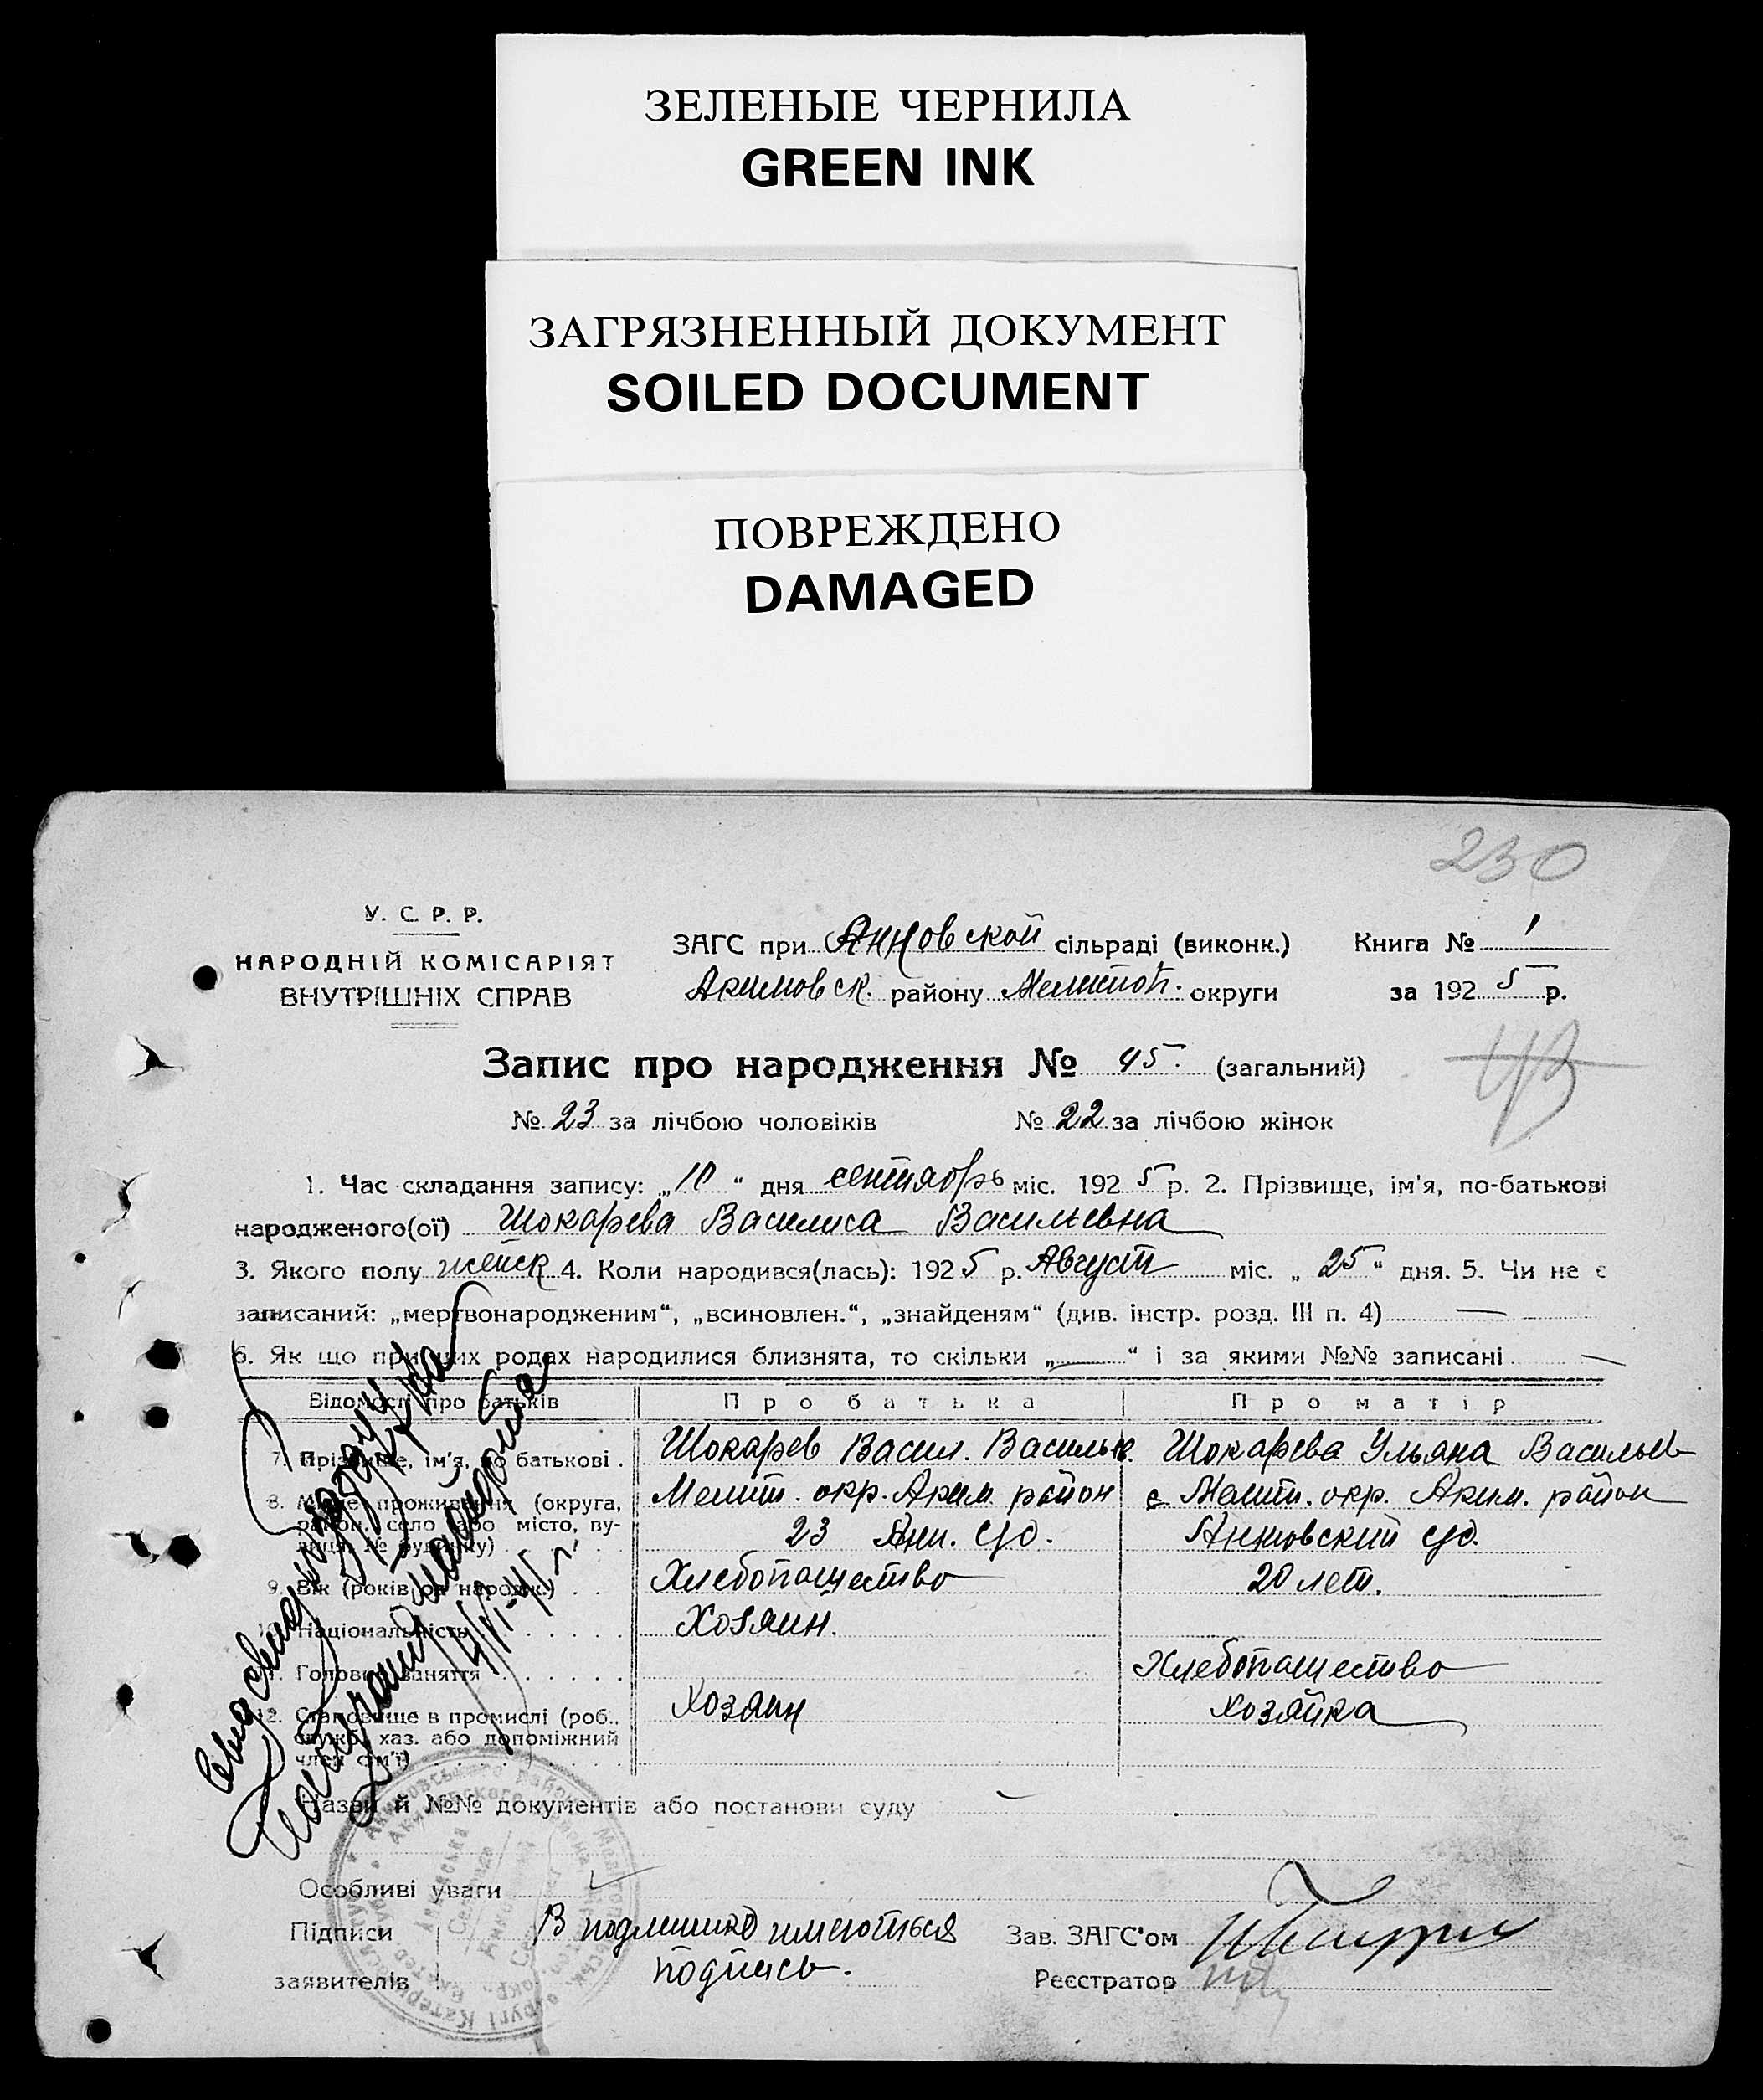 ЗЕЛЕНЫЕ ЧЕРНИЛА
GREEN INK
ЗАГРЯЗНЕННЫЙ ДОКУМЕНТ
SOILED DOCUMENT
ПОВРЕЖДЕНО
DAMAGED
230
У. С. Р. Р.
НАРОДНІЙ КОМІСАРІЯТ
ВНУТРІШНІХ СПРАВ
ЗАГС при Анновской сільраді (виконк.) Книга № 1
Акимовск. району Мелитоп. округи за 192 5 р.
Запис про народження № 45. (загальний)
№ 23 за лічбою чоловіків № 22 за лічбою жінок
1. Час складання запису: „10“ дня сентябрь міс. 192 5 р. 2. Прізвище, ім'я, по-батькові
народженого(ої) Шокарева Василиса Васильевна
3. Якого полу женск 4. Коли народився(лась): 192 5 р. Август міс. „25“ дня. 5. Чи не є
записаний: „мертвонародженим“, „всиновлен.“, „знайденям“ (див. інстр. розд. III п. 4)
6. Як що при цих родах народилися близнята, то скільки „ “ і за якими №№ записані
Відомості про батьків Про батька Про матір
7. Прізвище, ім'я, по батькові . Шокарев Васил. Василье. Шокарева Ульяна Васильев
8. Місце проживання (округа, Мелит. окр. Аким. район Мелит. окр. Аким. район
район, село або місто, ву-
лиця, № будинку) 23 Анн. с/о. Анновский с/о.
9. Вік (років од народж.) Хлебопашество 20 лет.
10. Національність Хозяин.
11. Головне заняття Хлебопашество
12. Становище в промислі (роб., Хозяин хозяйка
служб. хаз. або допоміжний
член сім'ї)
Назви й №№ документів або постанови суду
Особливі уваги
Підписи В подлинике имеються Зав. ЗАГС'ом
заявителів подпись. Реєстратор